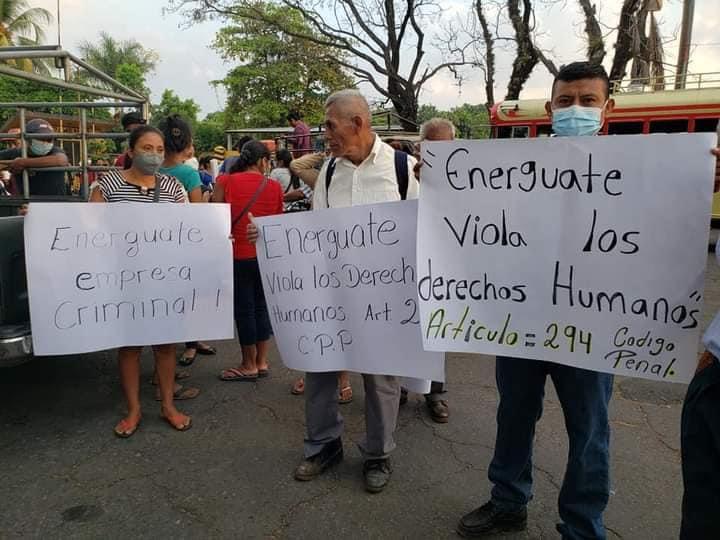 Energuate
empresa
Criminal !
Energuate
Viola los Derech
Humanos Art. 2
C.P.P
"Energuate
Viola los
derechos Humanos"
Articulo = 294 Codigo
Penal.